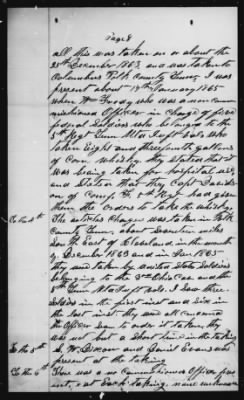 Page 8
all this was taken on or about the
25th December 1863, and was taken to
Columbus Polk County Tenn, I was
present about 18th January 1865
when Wm Grady who was a non com
missioned Officer in charge of five
federal Soldiers who belong to the
5th Regt Tenn Mtn Inft Vols who
taken Eight and three fourth gallons
of Corn whisky, they stated that it
was being taken for hospital use,
and Stated that they Capt
of Comp had given
them the orders to take the whisky.
To the 4th The articles charged was taken in Polk
County Tenn, about Seventeen miles
South East of Cleveland in the month
of December 1863 and in Jan 1865
they was taken by United States Soldiers
belonging to the Ohio Cav and the
5th Tenn Mtn Inft Vols. I saw three
Soldiers in the first inst and Six in
the last inst they was all
the Officer I saw to order it taken, they
was not but a Short time in the taking
To the 5th G. W. Dixon and Daniel Evans was
present at the taking
To the 6th There was a non Commissioned Officer pres
ent, at Each taking, name unknown